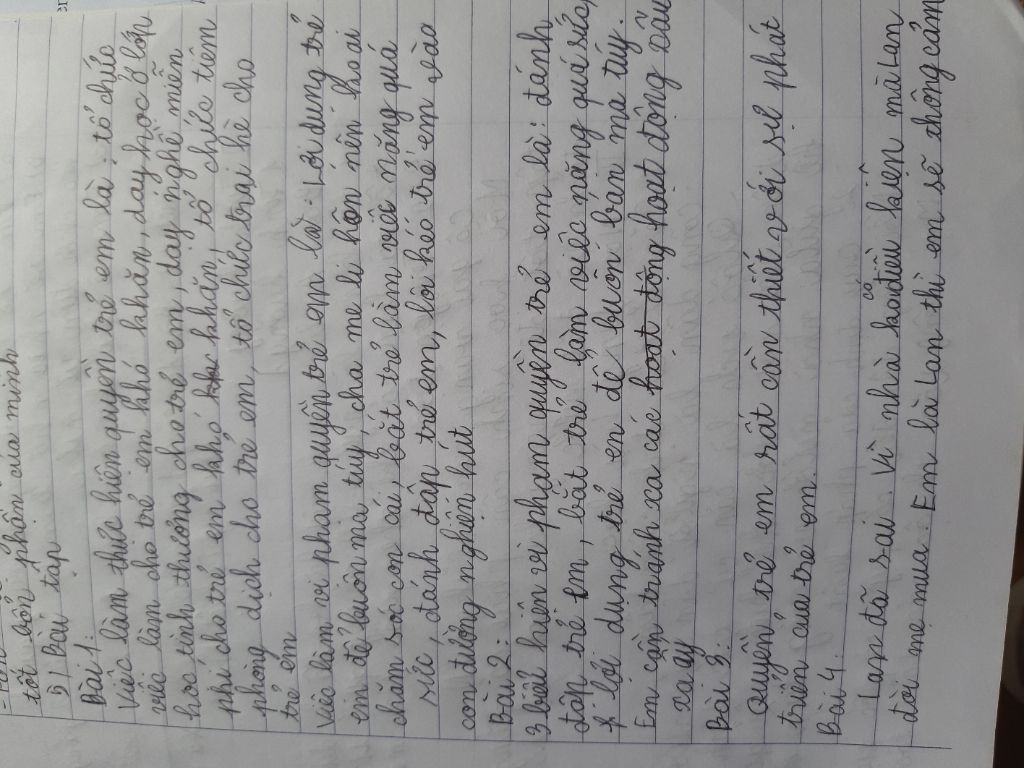 tốt bổn phận của mình
D) Bài tập
Bài 1:
Việc làm thực hiện quyền trẻ em là: tổ chức
việc làm cho trẻ em khó khăn, dạy học ở lớp
học tình thương cho trẻ em, dạy nghề miễn
phí cho trẻ em khó khăn, tổ chức tiêm
phòng dịch cho trẻ em, tổ chức trại hè cho
trẻ em
Việc làm vi phạm quyền trẻ em là: Lợi dụng trẻ
em để buôn ma túy cha mẹ li hôn nên ko ai
chăm sóc con cái, bắt trẻ làm việc nặng quá
sức, đánh đập trẻ em, lôi kéo trẻ em vào
con đường nghiện hút
Bài 2:
3 biểu hiện vi phạm quyền trẻ em là: đánh
đập trẻ em, bắt trẻ làm việc nặng quá sức,
lợi dụng trẻ en để buôn bán ma túy.
Em cần tránh xa các hoạt động hoạt động xấu
xa ấy
Bài 3:
Quyền trẻ em rất cần thiết với sự phát
triển của trẻ em.
Bài 4.
Lan đã sai. Vì nhà ko có điều kiện mà Lan
đòi mẹ mua. Em là Lan thì em sẽ thông cảm